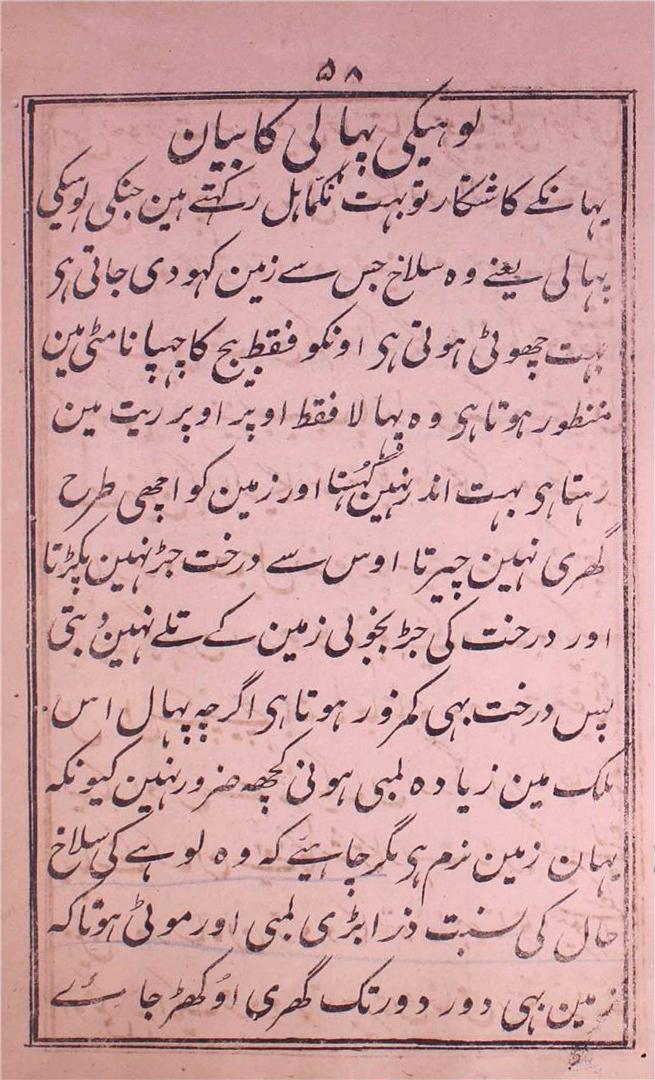 ۵۸
لوہیکی پہالی کا بیان
یہانکے کاشتکار تو بہت نکما ہل رکہتے ہین جنکی لوہیکی
پہالی یعنے وہ سلاخ جس سے زمین کہودی جاتی ہی
بہت چھوٹی ہوتی ہی اونکو فقط بیج کا چہپانا مٹی مین
منظور ہوتا ہی وہ پہالا فقط اوپر اوپر ریت مین
رہتا ہی بہت اندر نہین گہستا اور زمین کو اچھی طرح
گہری نہین چیرتا اوس سے درخت جڑ نہین پکڑتا
اور درخت کی جڑ بخوبی زمین کے تلے نہین دبتی
پس درخت بہی کمزور ہوتا ہی اگرچہ پہال اس
ملک مین زیادہ لمبی ہونی کچھہ ضرور نہین کیونکہ
یہان زمین نرم ہی مگر چاہیئے کہ وہ لوہے کی سلاخ
حال کی نسبت ذرا بڑی لمبی اور موٹی ہو تاکہ
زمین بہی دور دور تک گہری اوکھڑ جائے